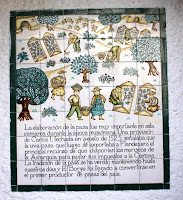 La elaboración de la pasa fue muy importante en esta
comarca durante la época musulmana. Una provisión
de Carlos I, fechada en agosto de 1525, señalaba que
la uva pasa, que luego se exportaba a Flandes, era el
principal recurso de que disponían los moriscos de
la Axarquía para pagar sus impuestos a la Corona.
La tradición de la pasa se ha venido manteniendo hasta
nuestros días y El Borge ha llegado a convertirse en
el primer productor de pasas del país.